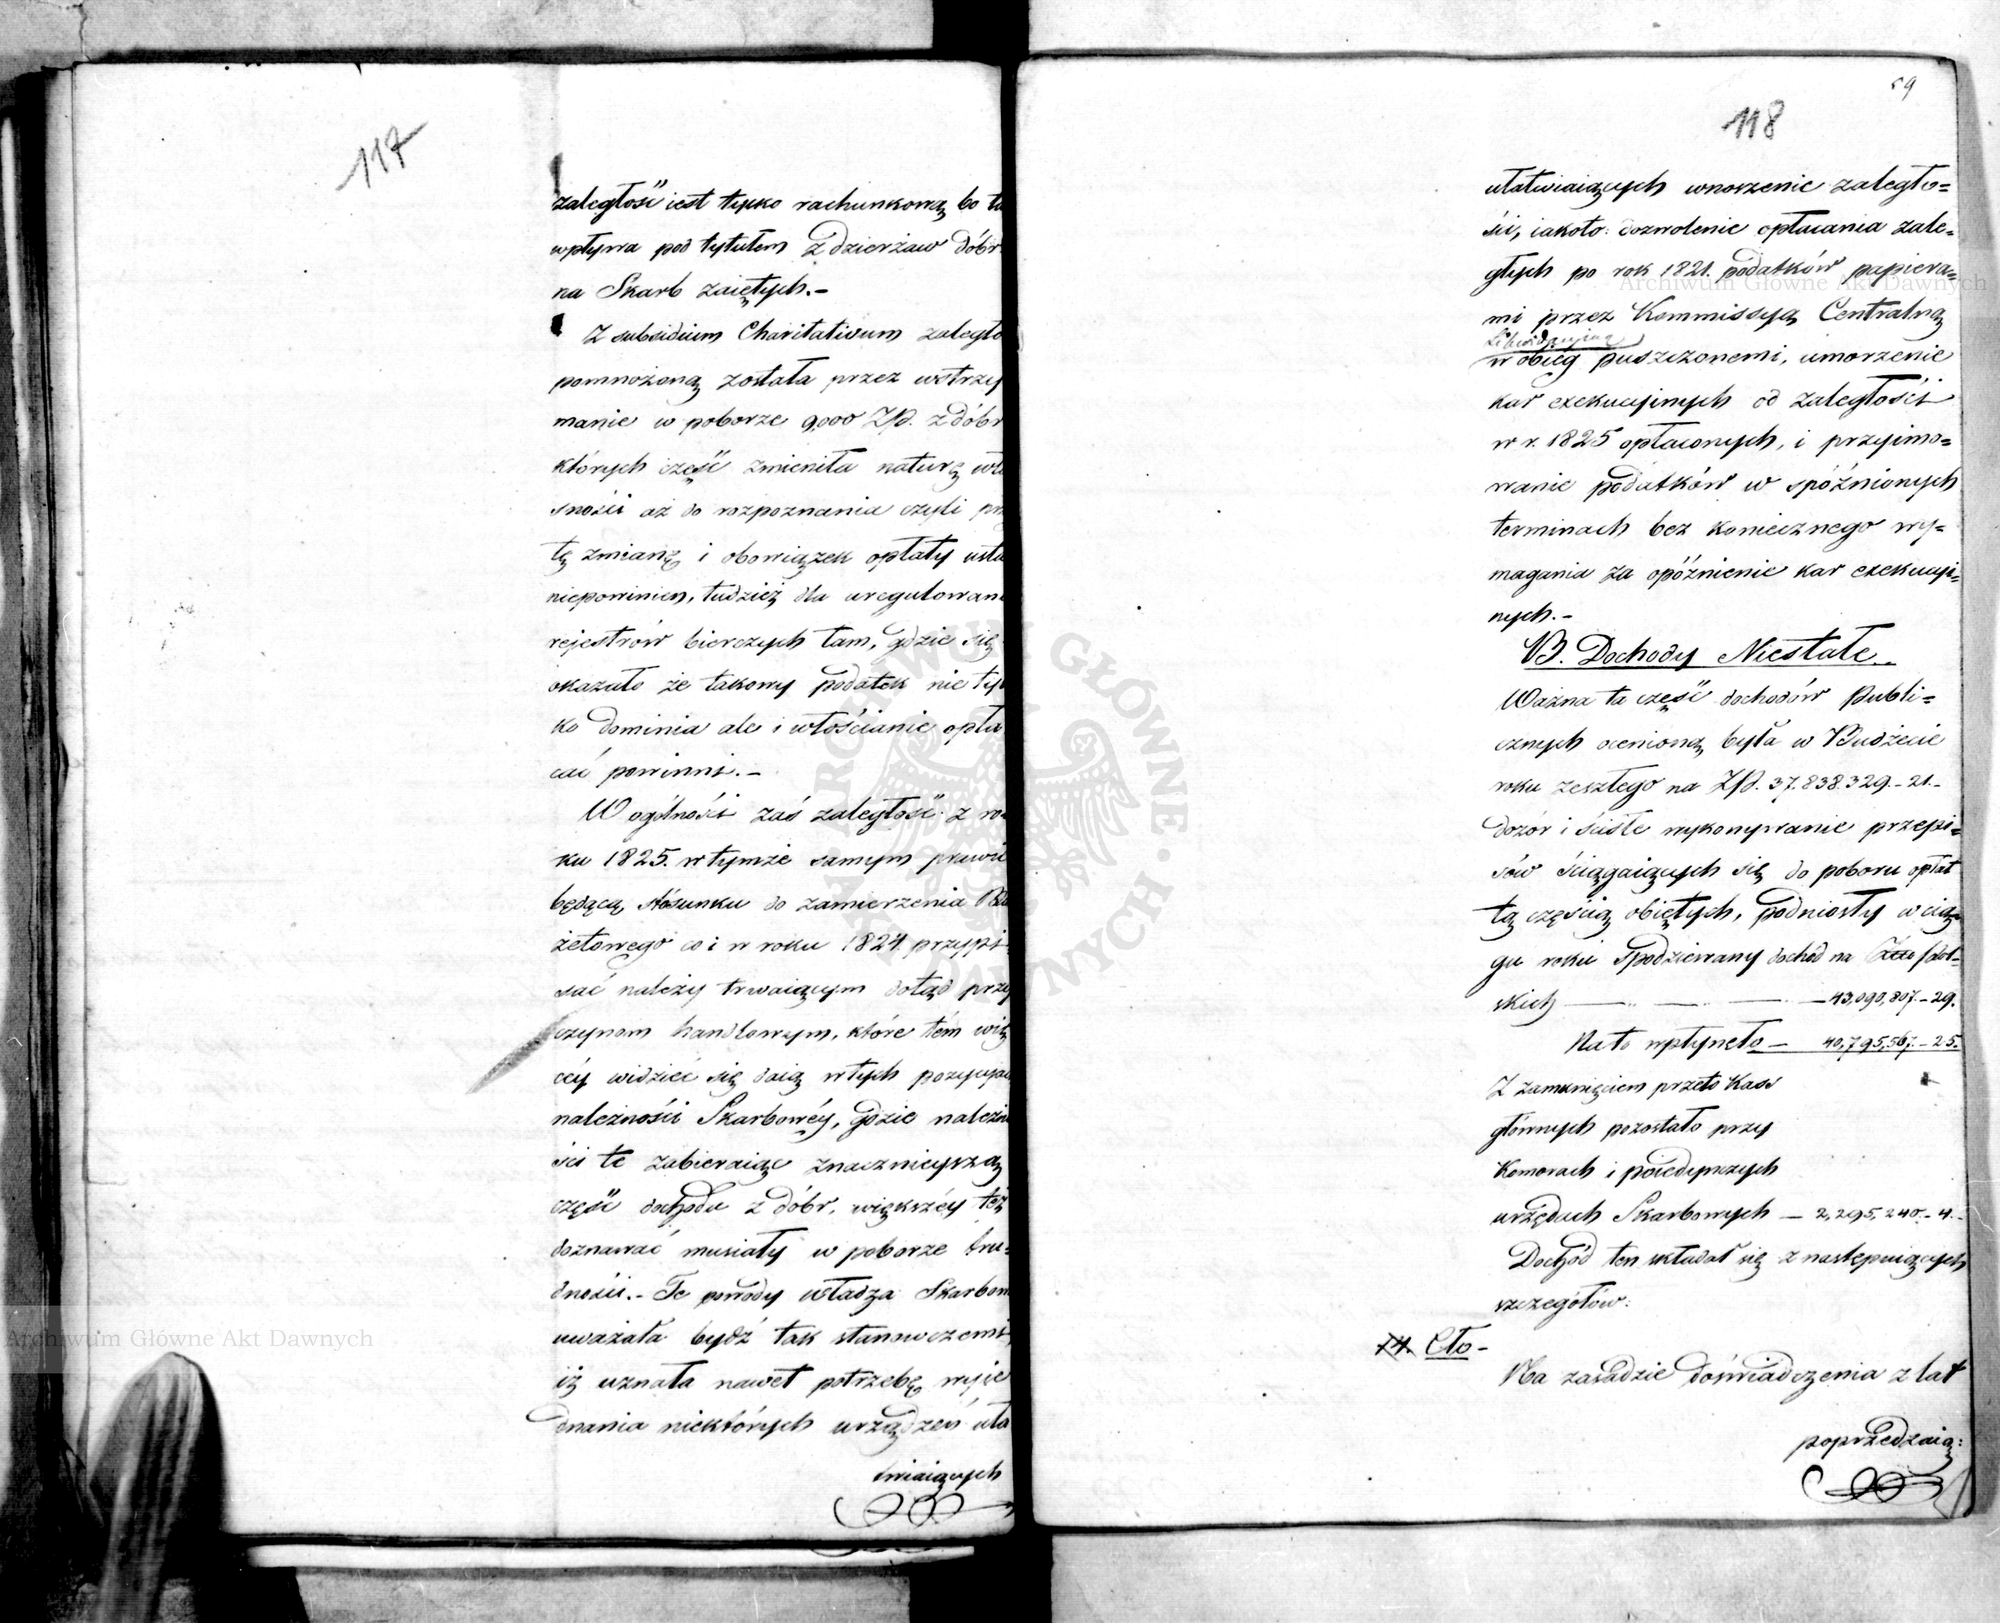 117
zaległość iest tylko rachunkową bo ta
wpływa pod tytułem Z dzierżaw dóbr
na Skarb zaiętych.-
Z subsidium Charitativum zaległo
pomnożoną została przez wstrzy
manie w poborze 9,000 Złp. z dóbr
których część zmieniła naturę wła
sności aż do rozpoznania czyli prz
tę zmianę i obowiązek opłaty usta
niepowinien, tudzież dla uregulowani
rejestrów bierczych tam, gdzie się
okazało że takowy podatek nie tyl
ko dominia ale i włościanie opła
cać powinni.-
W ogólności zaś zaległość z ro-
ku 1825. w tymże samym prawie
będącą stósunku do zamierzenia Bud
żetowego co i w roku 1824. przypi-
sać należy trwaiącym dotąd przy
czynom handlowym, które tém wię
céy widzieć się daią w tych pozycyac
należności Skarbowéy, gdzie należno
ści te zabieraiąc znacznieyszą
część dochodu z dóbr, większéy téż
doznawać musiały w poborze tru-
dności.- Te powody władza Skarbow
uważała bydź tak stanowczemi
iż uznała nawet potrzebę wyie
dnania niektórych urządzeń uła
twiaiących
59
118
ułatwiaiących wnoszenie zaległo=
ści, iakoto: dozwolenie opłacania zale=
głych po rok 1821. podatków papiera=
mi przez Kommissyą Centralną
Likwidacyjną
w obieg puszczonemi, umorzenie
kar exekucyjnych od zaległości
w r. 1825 opłaconych, i przyimo=
wanie podatków w spóźnionych
terminach bez koniecznego wy=
magania za opóźnienie kar exekucyi=
nych.-
B. Dochody Niestałe.-
Ważna ta część dochodów Publi=
cznych ocenioną była w Budżecie
roku zeszłego na Złp. 37.838.329.-21.-
dozór i ścisłe wykonywanie przepi=
sów ściągaiących się do poboru opłat
tą częścią obiętych, podniosły w cią=
gu roku spodziewany dochód na Złto pol-
skich — — — 43,090,807.-29.
Na to wpłynęło — 40,795,567.-25.
Z zamknięciem przeto Kass
głównych pozostało przy
Komorach i poiedynczych
urzędach Skarbowych — 2,295,240.-4.-
Dochód ten składał się z następuiących
szczegółów:
14. Cło-
Na zasadzie doświadczenia z lat
poprzedzaią:
Archiwum Główne Akt Dawnych
Archiwum Główne Akt Dawnych
ARCHIWUM GŁÓWNE AKT DAWNYCH